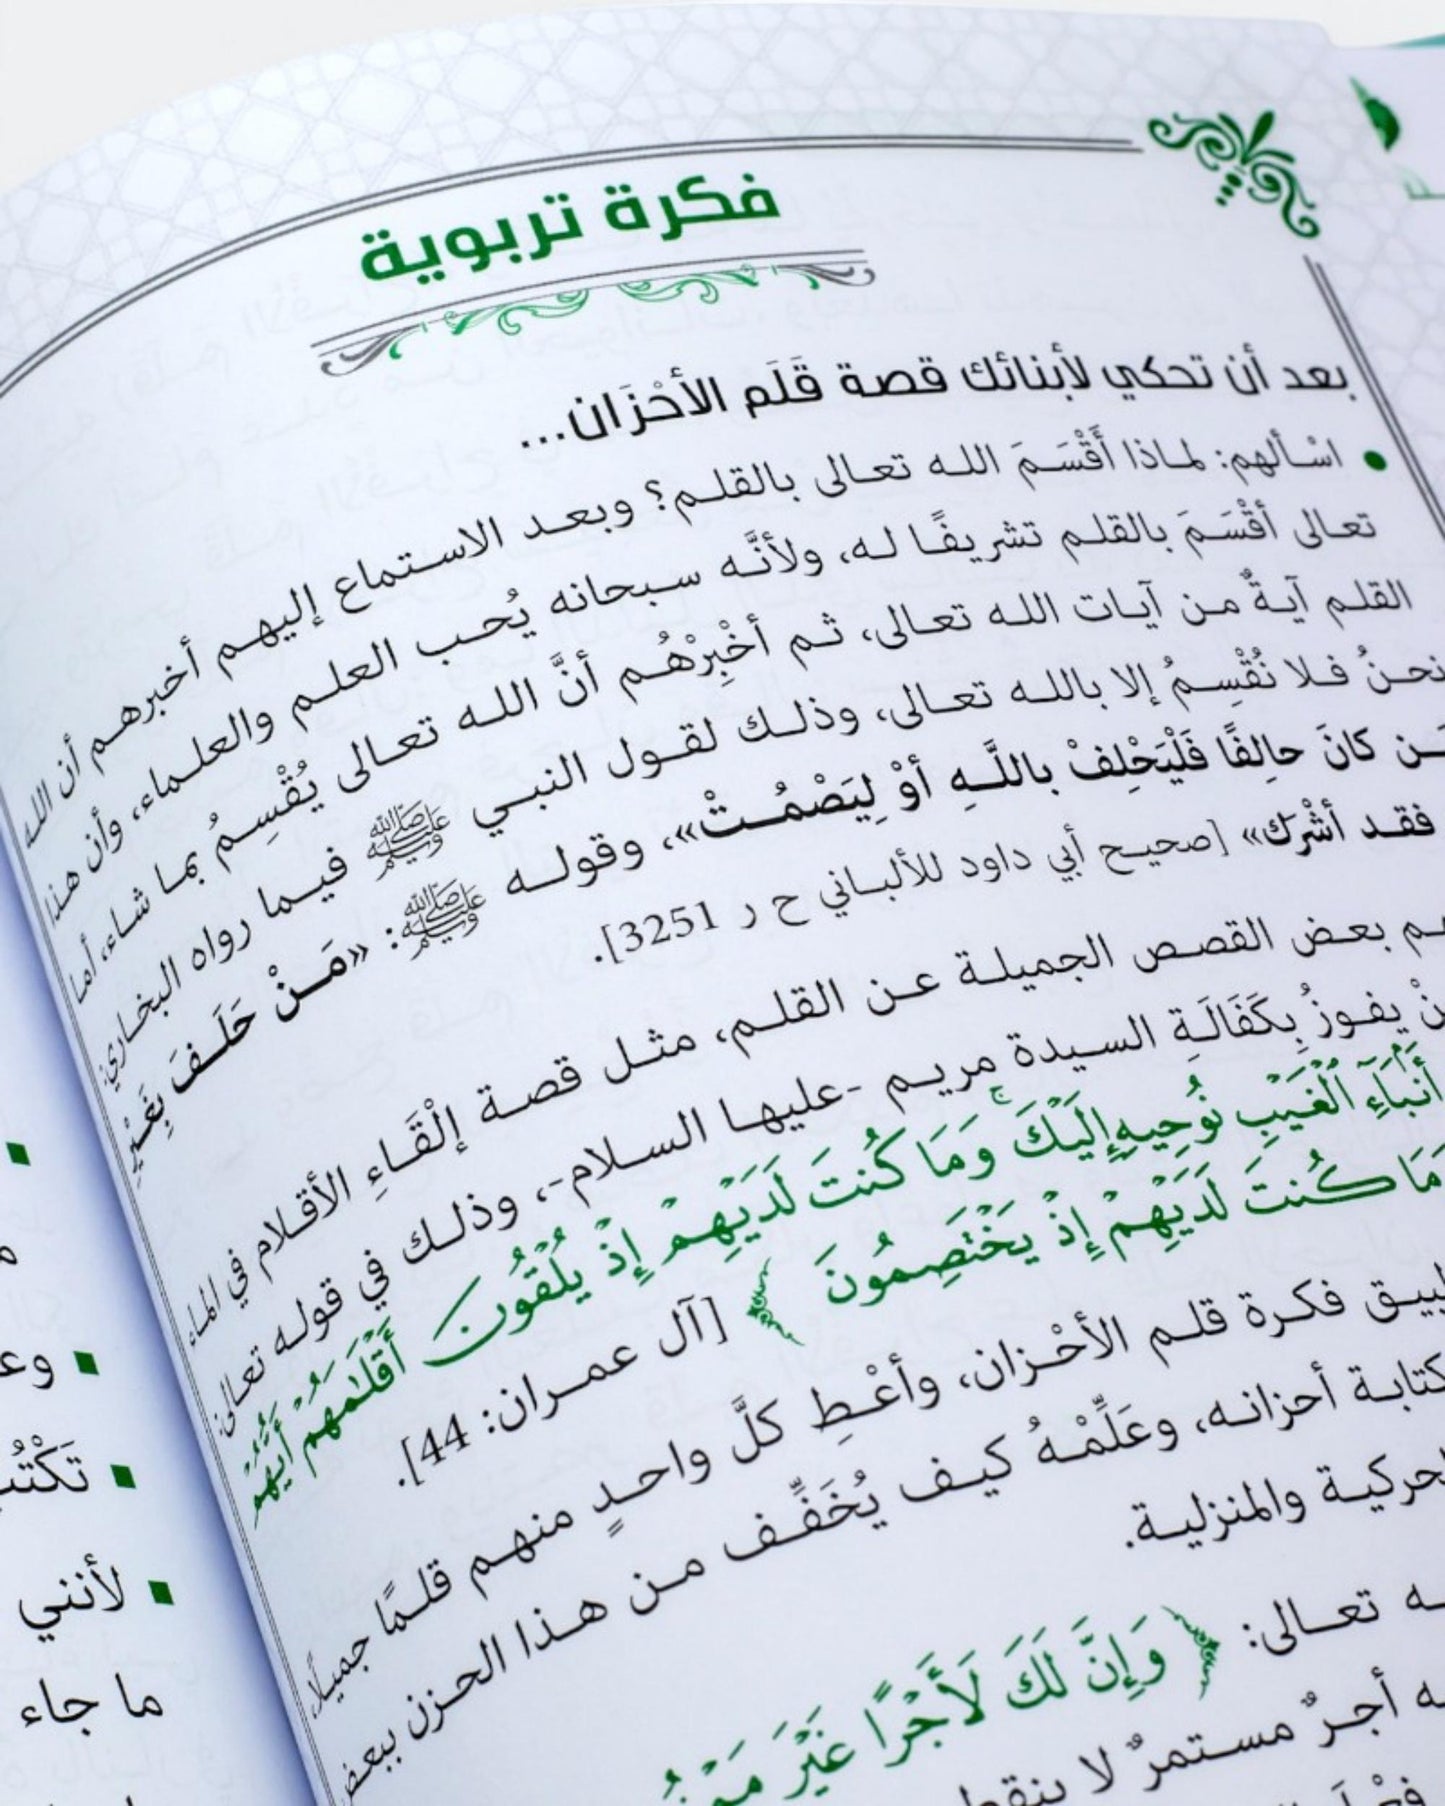 فكرة تربوية
بعد أن تحكي لأبنائك قصة قَلَم الأحْزَان...
اسْألهم: لماذا أَقْسَمَ الله تعالى بالقلم؟ وبعد الاستماع إليهم أخبرهم أن الله
تعالى أقْسَمَ بالقلم تشريفًا له، ولأنَّه سبحانه يُحب العلم والعلماء، وأن هذا
القلم آيةٌ من آيات الله تعالى، ثم أخْبِرْهُم أنَّ الله تعالى يُقْسِمُ بما شاء، أما
نحنُ فلا نُقْسِمُ إلا بالله تعالى، وذلك لقول النبي ﷺ فيما رواه البخاري:
كانَ حالِفًا فَلْيَحْلِفْ باللَّهِ أوْ لِيَصْمُتْ»، وقوله ﷺ: «مَنْ حَلَفَ بِغَيْرِ
فقد أشْرَك» [صحيح أبي داود للألباني ح ر 3251].
بعض القصص الجميلة عن القلم، مثل قصة إلْقَاءِ الأقلام في الماء
يفوزُ بِكَفَالَةِ السيدة مريم -عليها السلام-، وذلك في قوله تعالى:
أَنۢبَآءِ ٱلْغَيْبِ نُوحِيهِ إِلَيْكَ ۚ وَمَا كُنتَ لَدَيْهِمْ إِذْ يُلْقُونَ أَقْلَٰمَهُمْ أَيُّهُمْ
كُنتَ لَدَيْهِمْ إِذْ يَخْتَصِمُونَ ﴾ [آل عمران: 44].
فكرة قلم الأحْزان، وأعْطِ كلَّ واحدٍ منهم قلمًا جميلًا،
أحزانه، وعَلِّمْهُ كيف يُخَفِّف من هذا الحزن ببعض
والمنزلية.
تعالى: ﴿ وَإِنَّ لَكَ لَأَجْرًا غَيْرَ
أجرٌ مستمرٌ لا
تَكْتُبُ
لأنني
ما جاء